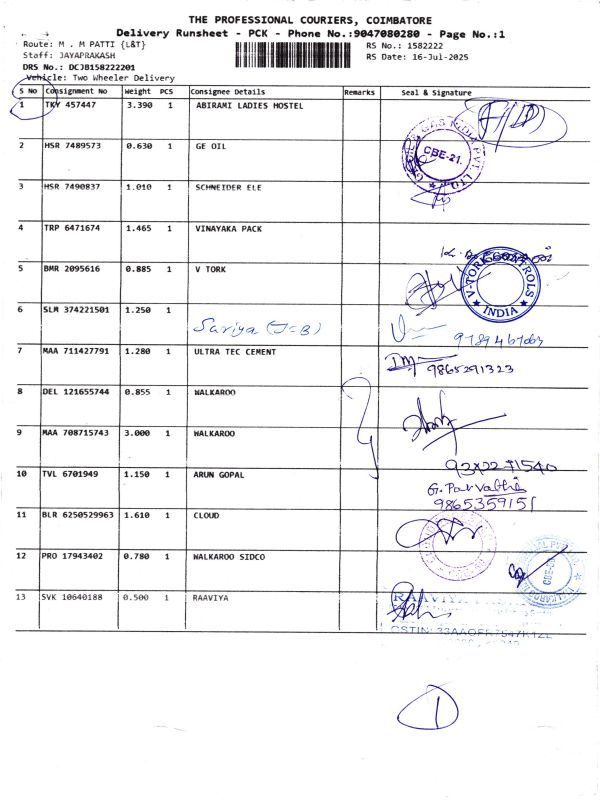 THE PROFESSIONAL COURIERS, COIMBATORE
Delivery Runsheet - PCK - Phone No.:9047080280 - Page No.:1
Route: M . M PATTI {L&T} RS No.: 1582222
Staff: JAYAPRAKASH RS Date: 16-Jul-2025
DRS No.: DCJB158222201
Vehicle: Two Wheeler Delivery
S No Consignment No Weight PCS Consignee Details Remarks Seal & Signature
1 TKY 457447 3.390 1 ABIRAMI LADIES HOSTEL
2 HSR 7489573 0.630 1 GE OIL
CBE-21.
3 HSR 7490837 1.010 1 SCHNEIDER ELE
4 TRP 6471674 1.465 1 VINAYAKA PACK
5 BMR 2095616 0.885 1 V TORK
V-TORK CONTROLS
INDIA
6 SLM 374221501 1.250 1
Sariya
9789467063
7 MAA 711427791 1.280 1 ULTRA TEC CEMENT
9865291323
8 DEL 121655744 0.855 1 WALKAROO
9 MAA 708715743 3.000 1 WALKAROO
10 TVL 6701949 1.150 1 ARUN GOPAL
G. Parvathi
9865359151
11 BLR 6250529963 1.610 1 CLOUD
12 PRO 17943402 0.780 1 WALKAROO SIDCO
13 SVK 10640188 0.500 1 RAAVIYA
RAAVIYA
1